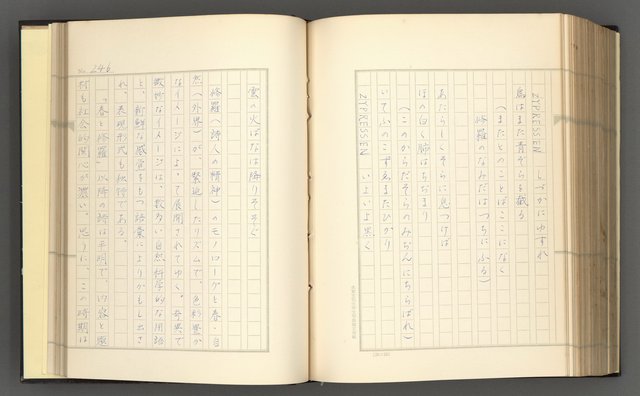 ZYPRESSEN しづかにゆすれ
鳥はまた青ぞらを截る
(まことのことばはここになく
修羅のなみだはつちにふる)
あたらしくそらに息つけば
ほの白く肺はちぢまり
(このからだそらのみぢんにちらばれ)
いてふのこずゑまたひかり
ZYPRESSEN いよいよ黒く
No. 246
雲の火ばなは降りそそぐ
修羅(詩人の精神)のモノローグと春・自
然(外界)が、緊迫したリズムで、色彩豊か
なイメージによって展開されてゆく。奇異で
なイメージは、数多い自然科学的な用語
と、新鮮な感覚をもつ語彙によりかもし出さ
れ、表現形式も独特である。
『春と修羅』以降の詩は平明で、内容と
社会的関心が濃い。思うに、この時期は